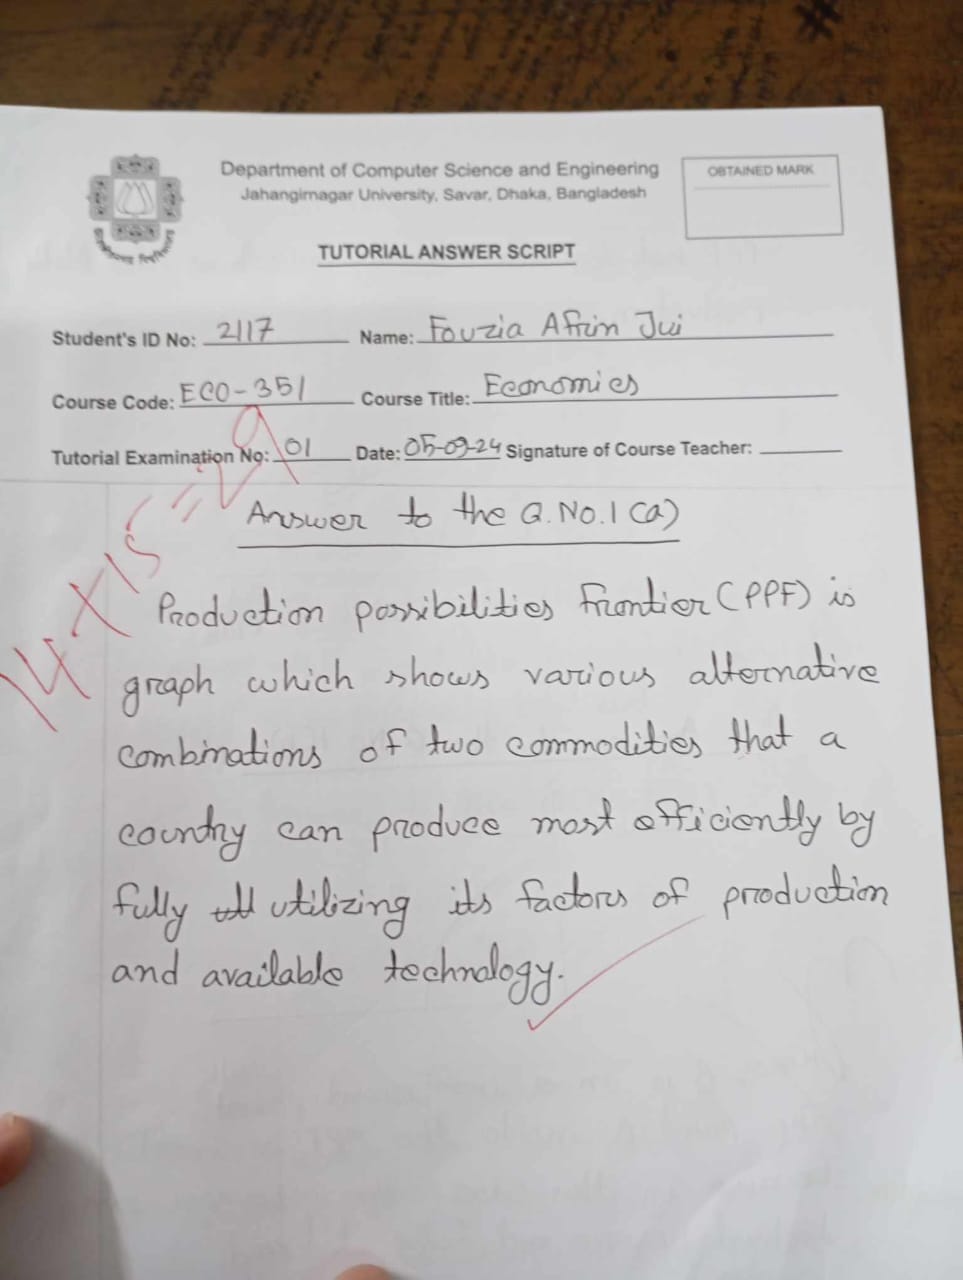 Department of Computer Science and Engineering
Jahangirnagar University, Savar, Dhaka, Bangladesh
OBTAINED MARK
TUTORIAL ANSWER SCRIPT
Student's ID No: 2117 Name: Fouzia Afrin Jui
Course Code: ECO-351 Course Title: Economics
Tutorial Examination No: 01 Date: 05-09-24 Signature of Course Teacher:
Answer to the Q.No.1(a)
Production possibilities Frontier (PPF) is
graph which shows various alternative
combinations of two commodities that a
country can produce most efficiently by
fully utilizing its factors of production
and available technology.